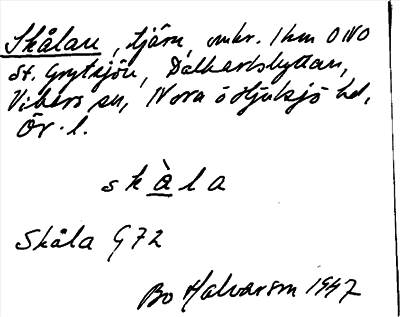 Skålan, tjärn, omkr. 1 km ONO
St. Grytsjön, Dalkarlshyttan,
Vikers sn, Nora o Hjulsjö hd,
Ör. l.
skà̲la
Skåla G72
Bo Halvarson 1947